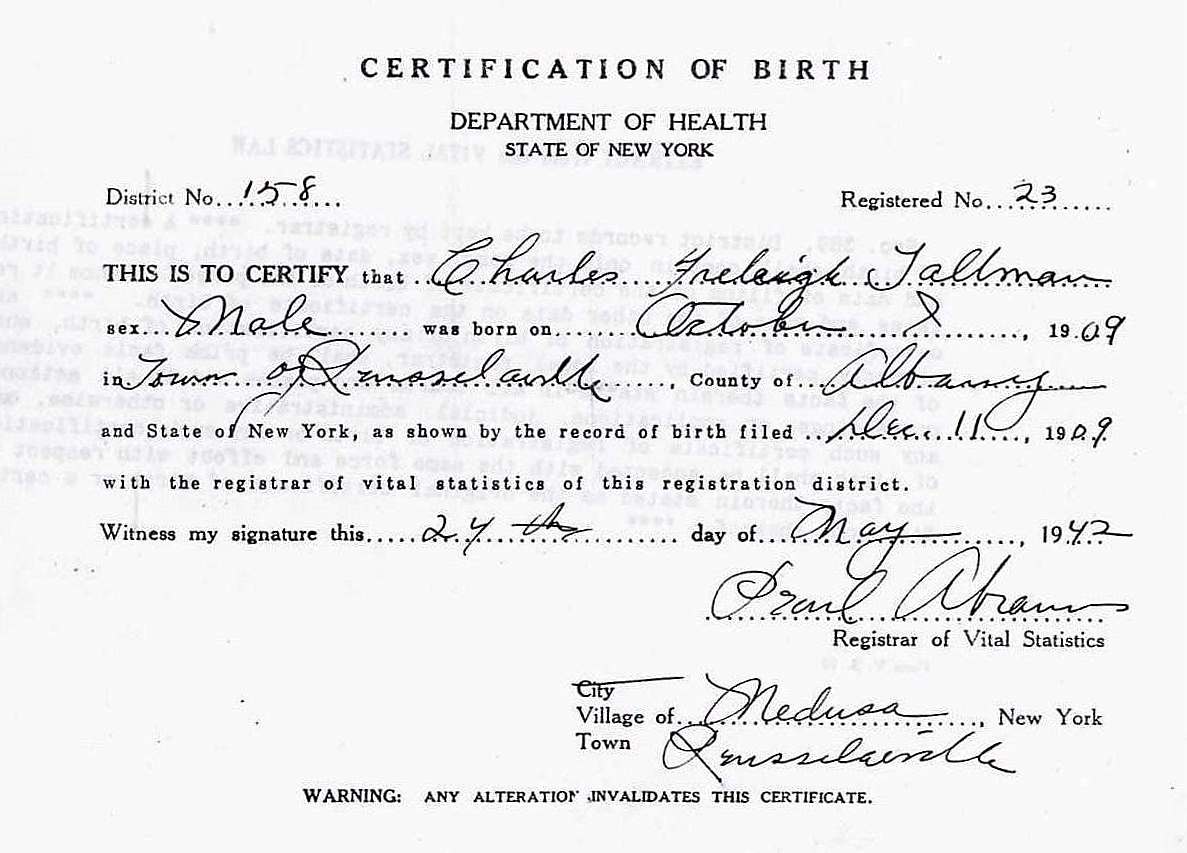 CERTIFICATION OF BIRTH
DEPARTMENT OF HEALTH
STATE OF NEW YORK
District No. 158 Registered No. 23
THIS IS TO CERTIFY that Charles Freleigh Tallman
sex Male was born on October , 1909
in Town of Rensselaerville, County of Albany
and State of New York, as shown by the record of birth filed Dec. 11, 1909
with the registrar of vital statistics of this registration district.
Witness my signature this 24th day of May, 1942
Pearl Abrams
Registrar of Vital Statistics
City
Village of Medusa, New York
Town Rensselaerville
WARNING: ANY ALTERATION INVALIDATES THIS CERTIFICATE.